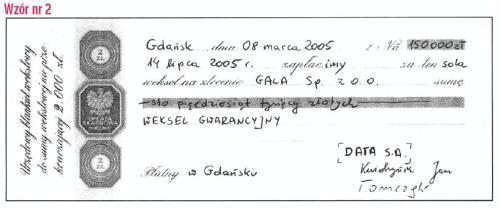 Wzór nr 2
Urzędowy blankiet wekslowy
do sumy wekslowej nie prze-
kraczającej 2.000 zł.
2
ZŁ
OPŁATA
SKARBOWA
2
ZŁ
Gdańsk dnia 08 marca 2005 r. Na 150 000 zł
14 lipca 2005 r. zapłac.imy za ten sola
weksel na zlecenie GALA Sp. z o.o. sumę
sto pięćdziesiąt tysięcy złotych
WEKSEL GWARANCYJNY
Płatny w Gdańsku
DATA S.A.
Jan